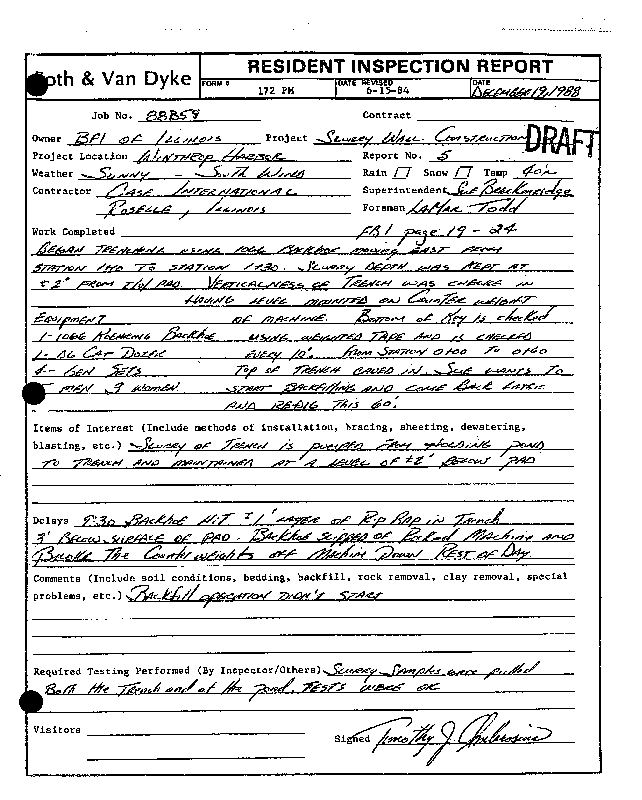 RESIDENT INSPECTION REPORT
oth & Van Dyke
FORM # 172 PM DATE REVISED 6-15-84 DATE DECEMBER 19, 1988
Job No. 88B59 Contract
Owner BFI OF ILLINOIS Project SLURRY WALL CONSTRUCTION
DRAFT
Project Location WINTHROP HARBOR Report No. 5
Weather SUNNY - SOUTH WIND Rain Snow Temp 40's
Contractor CASE INTERNATIONAL Superintendent Sue Breckinridge
ROSELLE, ILLINOIS Foreman LaMar Todd
Work Completed FBI page 19-24
BEGAN TRENCHING USING BACKHOE MOVING EAST FROM
STATION TO STATION 1+30. SLURRY DEPTH WAS KEPT AT
±2" FROM PAD. VERTICALNESS OF TRENCH WAS CHECKED IN
HAVING LEVEL MOUNTED ON COUNTER WEIGHT
Equipment OF MACHINE. Bottom of Key is checked
1- KOEHRING BACKHOE USING WEIGHTED TAPE AND IS CHECKED
1- D6 CAT DOZER EVERY 10'. FROM STATION 0+00 TO 0+60
4- GEN SETS TOP OF TRENCH CAVED IN. SUE WANTS TO
MEN WOMEN START BACKFILLING AND COME BACK LATER
AND REDIG THIS 60'.
Items of Interest (Include methods of installation, bracing, sheeting, dewatering,
blasting, etc.) SLURRY OF TRENCH IS PUMPED FROM HOLDING POND
TO TRENCH AND MAINTAINED AT A LEVEL OF ±2' BELOW PAD
Delays 9:30 BACKHOE HIT ±1' LAYER OF Rip RAP in Trench
3' BELOW SURFACE OF PAD. BACKHOE SLIPPED OF MACHINE AND
BROKE THE COUNTERWEIGHTS OFF MACHINE DOWN REST OF DAY.
Comments (Include soil conditions, bedding, backfill, rock removal, clay removal, special
problems, etc.) BACKFILL OPERATION DIDN'T START
Required Testing Performed (By Inspector/Others) SLURRY SAMPLES were pulled
Both the Trench and at the pond. TESTS WERE OK
Visitors
Signed Timothy J. Ambrosius